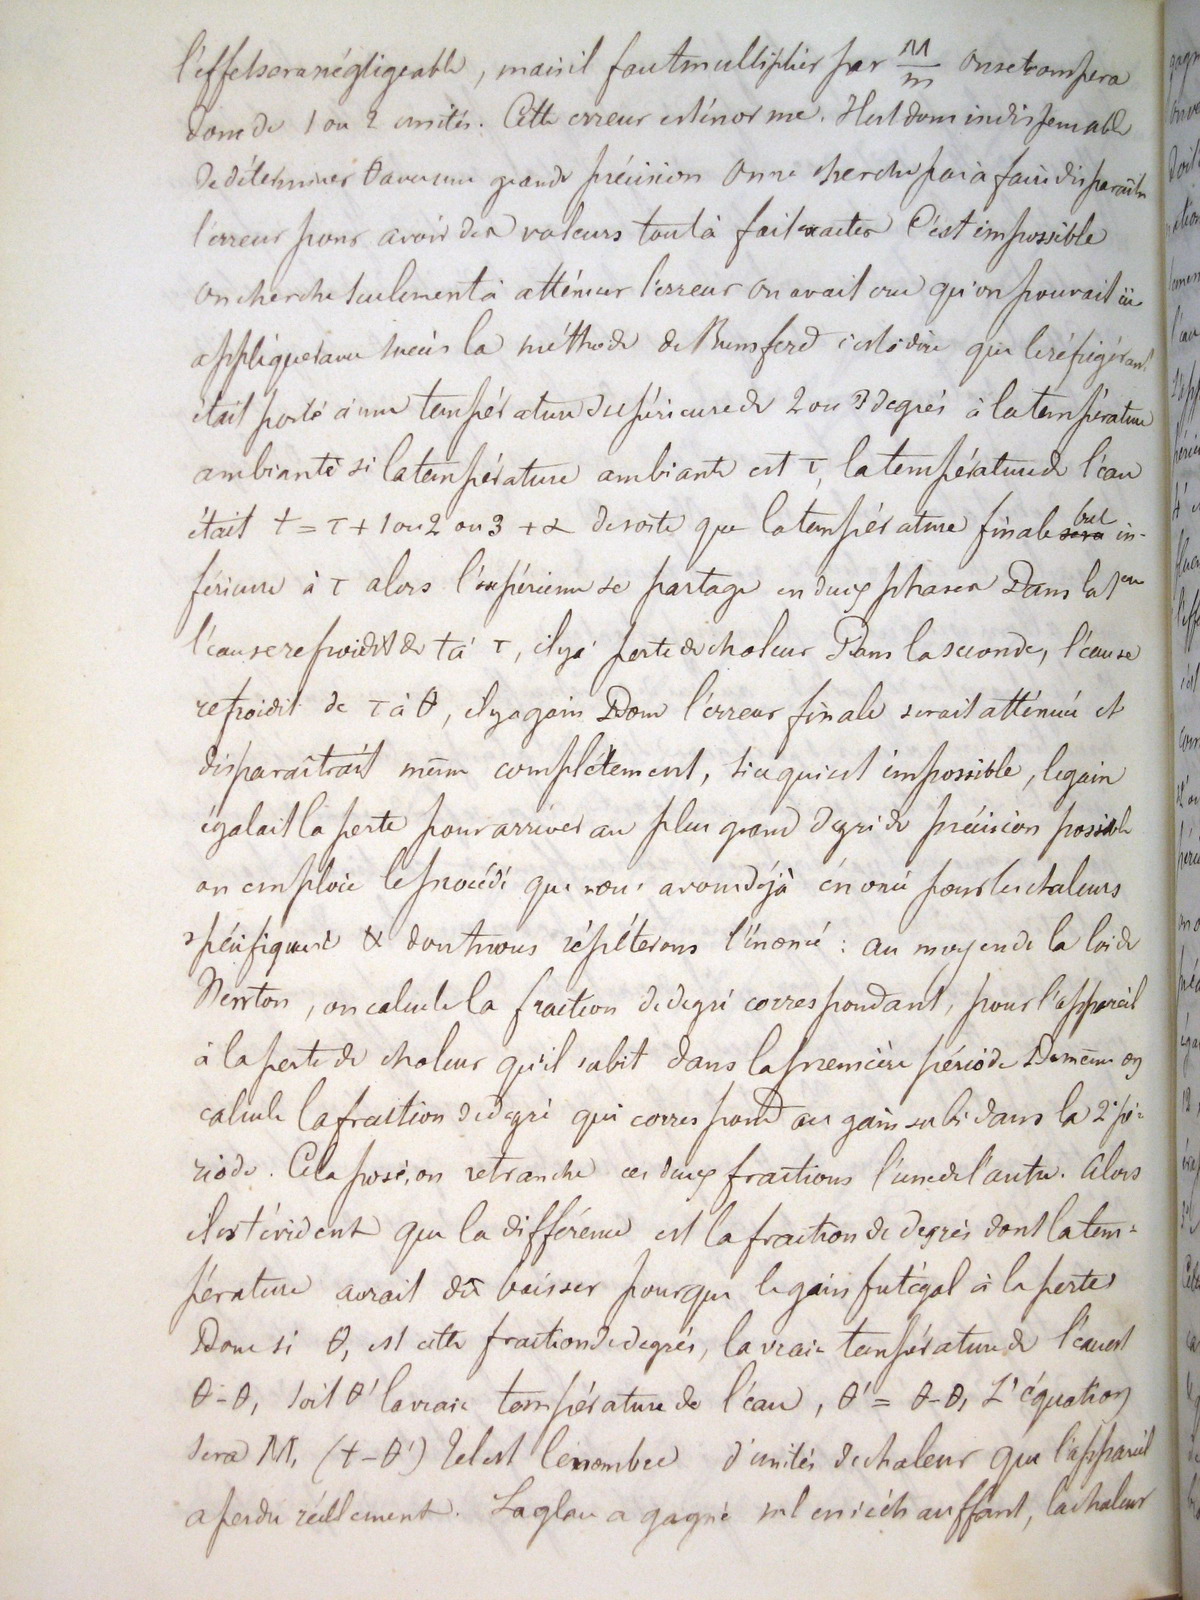 l'effet sera négligeable, mais il faut multiplier par M/m on se trompera
donc de 1 ou 2 unités. Cette erreur est énorme. Il est donc indispensable
de déterminer θ avec une grande précision On ne cherche pas à faire disparaître
l'erreur pour avoir des valeurs tout à fait exactes C'est impossible
on cherche seulement à atténuer l'erreur on avait cru qu'on pouvait ici
appliquer avec succès la méthode de Rumsford c'est à dire que le réfrigérant
était porté à une température supérieure de 2 ou 3 degrés à la température
ambiante si la température ambiante est τ, la température de l'eau
était t = τ + 1 ou 2 ou 3 + α de sorte que la température finale fut in-
férieure à τ alors l'expérience se partage en deux phases Dans la 1ere
l'eau se refroidit de t à τ, il y a perte de chaleur Dans la seconde, l'eau se
refroidit de τ à θ, il y a gain Donc l'erreur finale serait atténuée et
disparaîtrait même complétement, si ce qui est impossible, le gain
égalait la perte pour arriver au plus grand degré de précision possible
on emploie le procédé que nous avons déjà énoncé pour les chaleurs
spécifiques & dont nous répéterons l'énoncé : au moyen de la loi de
Newton, on calcule la fraction de degré correspondant, pour l'appareil
à la perte de chaleur qu'il subit dans la première période De même on
calcule la fraction de degré qui correspond au gain subi dans la 2e pé-
riode. Cela posé, on retranche ces deux fractions l'une de l'autre. Alors
il est évident que la différence est la fraction de degrés dont la tem-
pérature aurait dû baisser pour que le gain fut égal à la perte
Donc si θ, est cette fraction de degrés, la vraie température de l'eau est
θ-θ, soit θ' la vraie température de l'eau, θ' = θ-θ, L'équation
sera M, (t-θ') Tel est le nombre d'unités de chaleur que l'appareil
a perdu réellement. La glace a gagné ml en s'échauffant, la chaleur